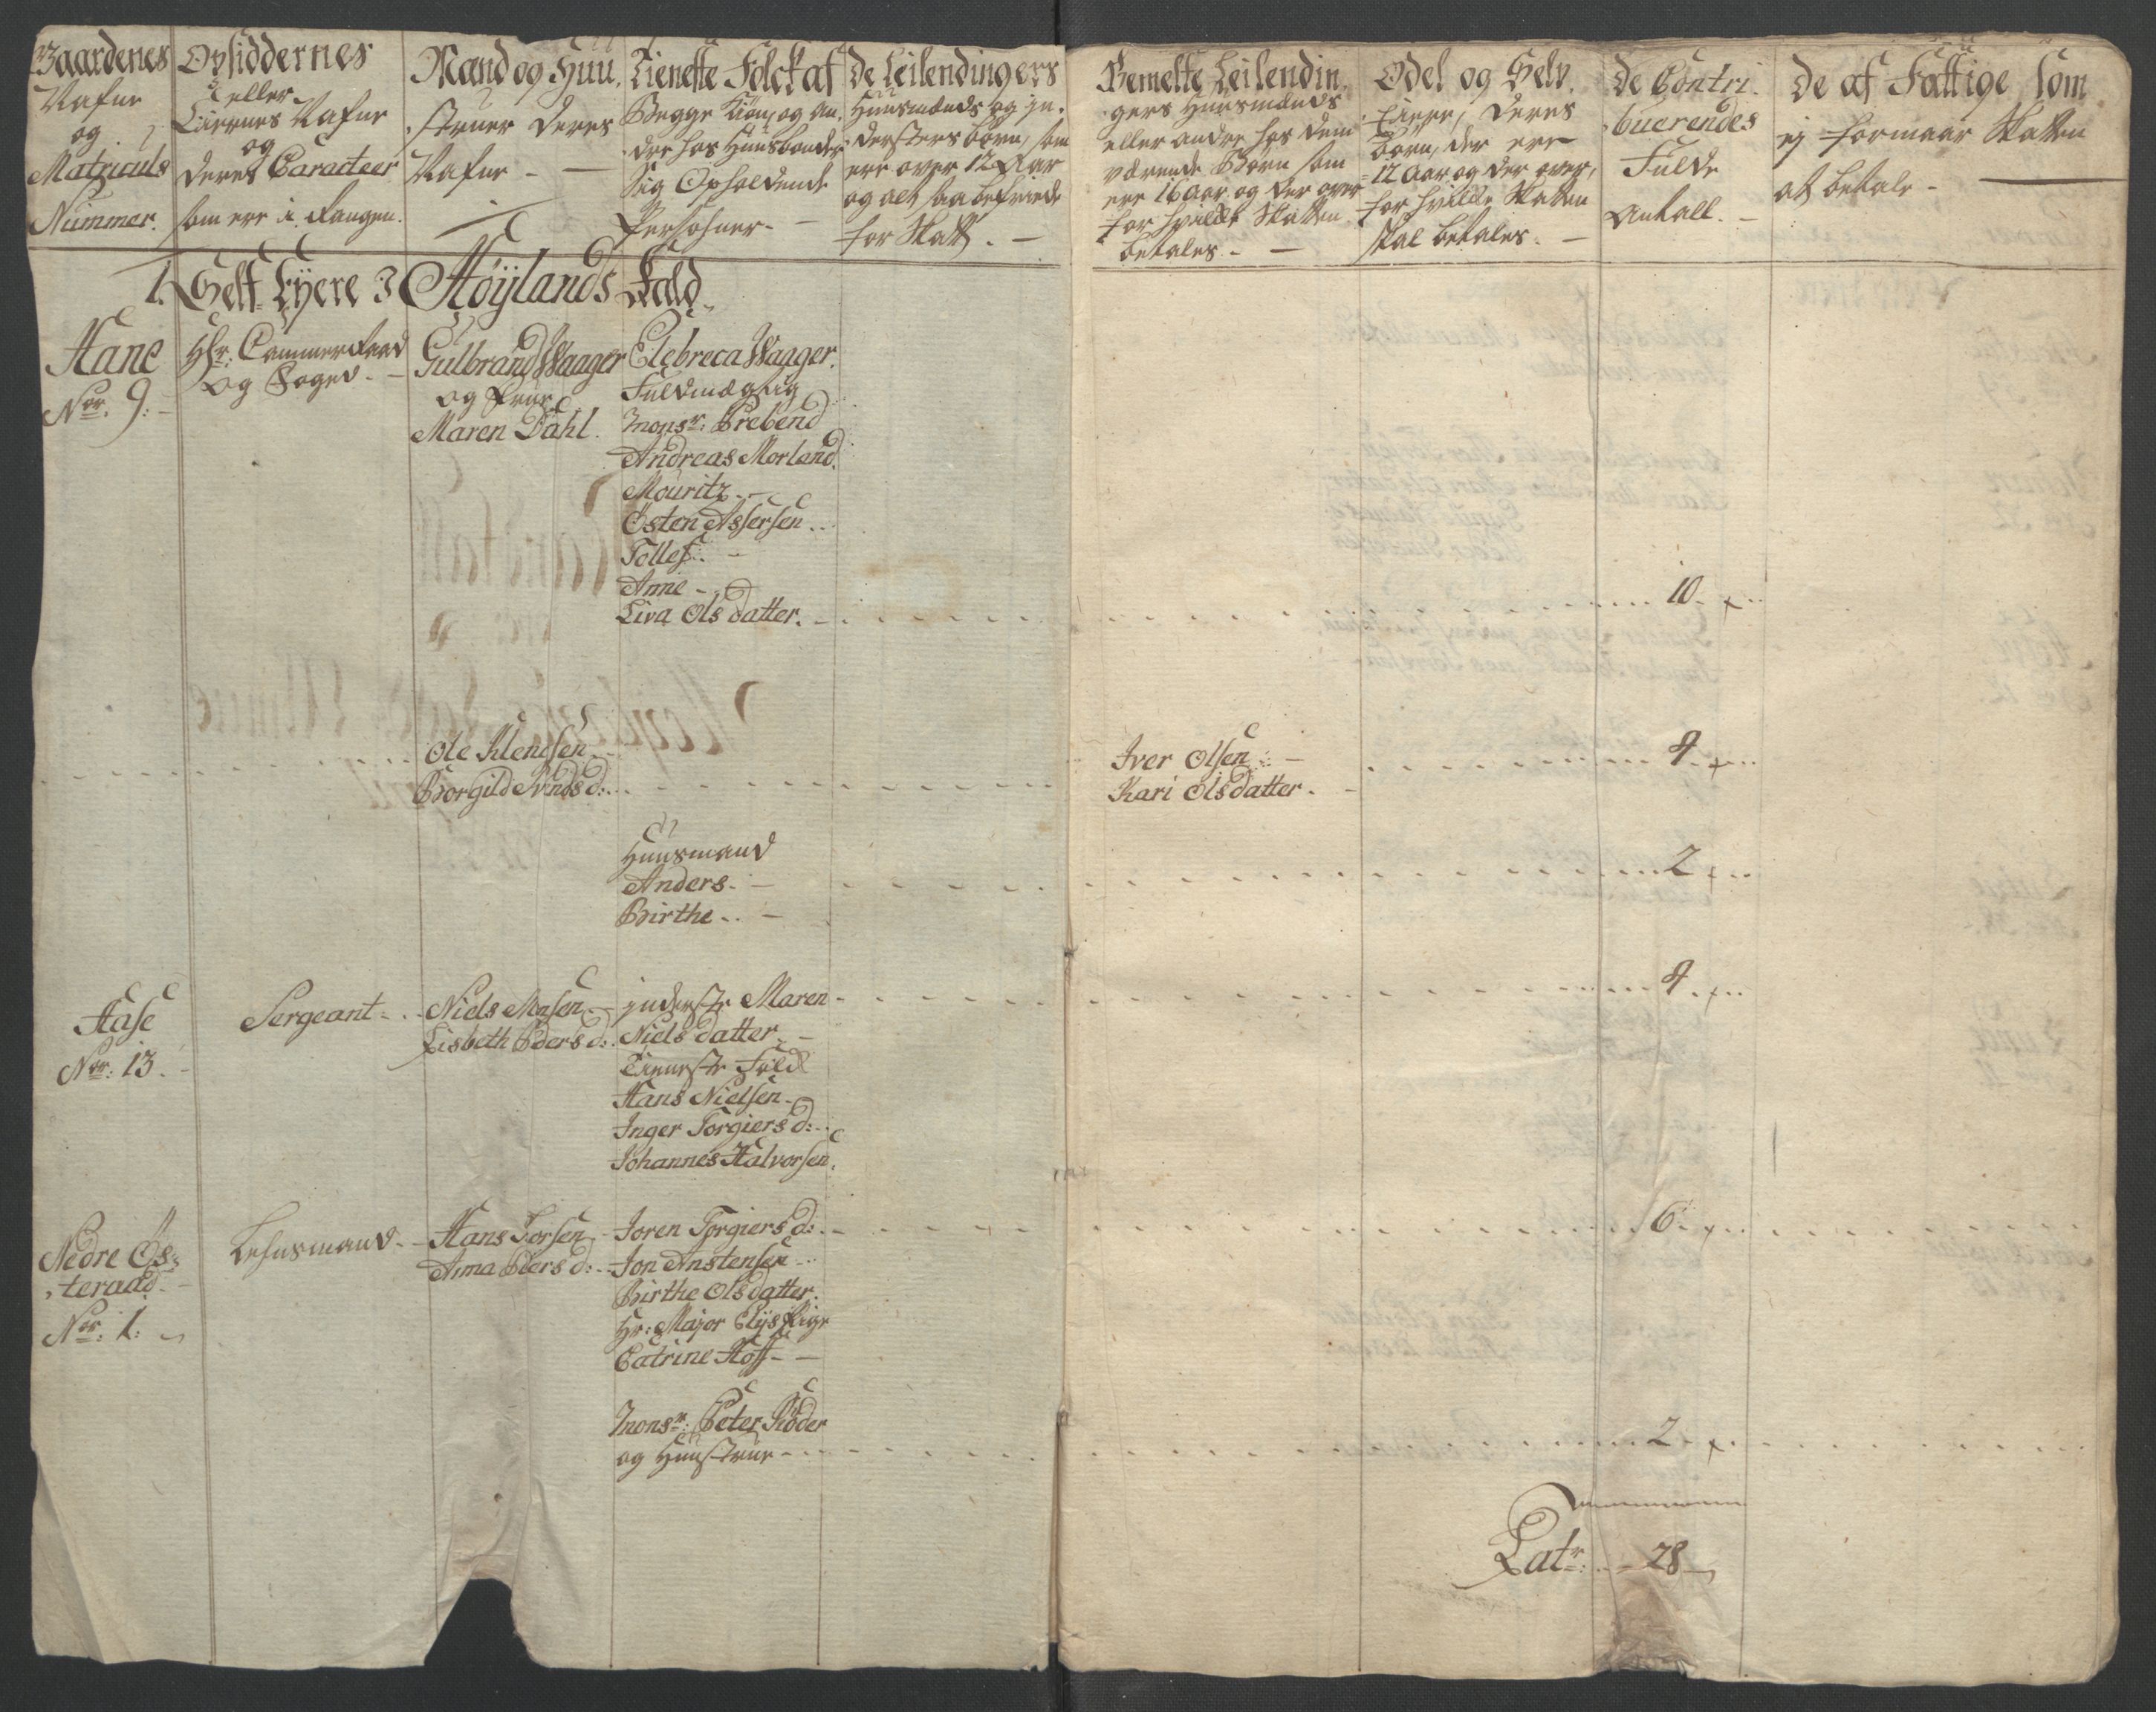 Gaardenes
Nafne
og
Matriculs
Nummer.
Opsiddernes
eller
Eiernes Nafne
og
deres Caracteer
som ere i Rangen.
Mand og Huu,
struer deres
Nafne -
Tieneste Folck af
Begge Kiøn, og An,
dre hos Huusbonder
sig Opholdende
Persohner -
De Leilendingers
Huusmænds og In,
dersters børn, som
ere over 12 Aar
og alt saa befriede
for Skatt. -
Bemelte Leilendin,
gers Huusmænds
eller andre hos dem
værende Børn som
ere 16 Aar og der over
for hvilke Skatten
betales -
Odel og Selv,
Eiere, deres
Børn, der ere
12 Aar og der over,
for hvilde Skatten
skal betales. -
De Contri,
buerendes
Fulde
Antall. -
De af Fattige som
ej formaar Skatten
at betale -
1. Self Eyere I Høÿlands Kald
Hane
Nor. 9. -
Hr. Cammer Raad
og Foged. -
Gulbrand Waager
og Frue
Maren Dahl.
Elebreca Waager.
Fuldmægtig
Monsr: Prebend
Andreas Morland.
Mouritz. -
Osten Assersen..
Tollef. -
Anne -
Liva Olsdatter. -
10.
Ole Klendsen
Borgild Svinds d:
Iver Olsen -
Kari Olsdatter. -
4.
Huusmand
Anders. -
Birthe.. -
2
Aase
Nor. 13. -
Sergeant -
Niels Monsen
Lisbeth Peders d:
Inderste Maren
Niels datter -
Tieneste Fold
Hans Nielsen -
Inger Torgiers d:
Johannes Halvorsen.
4.
Nedre Øs,
, teraad. -
Nor. 1.
Lehnsmand. -
Hans Torsen
Anna Peders d:
Joren Torgiers d: -
Jon Anstensen
Birthe Olsdatter.
Hr: Major Elÿs Pige
Catrine Hoff -
6.
Monsr: Peter Röder
og Huustrue -
2.
Latr: 28